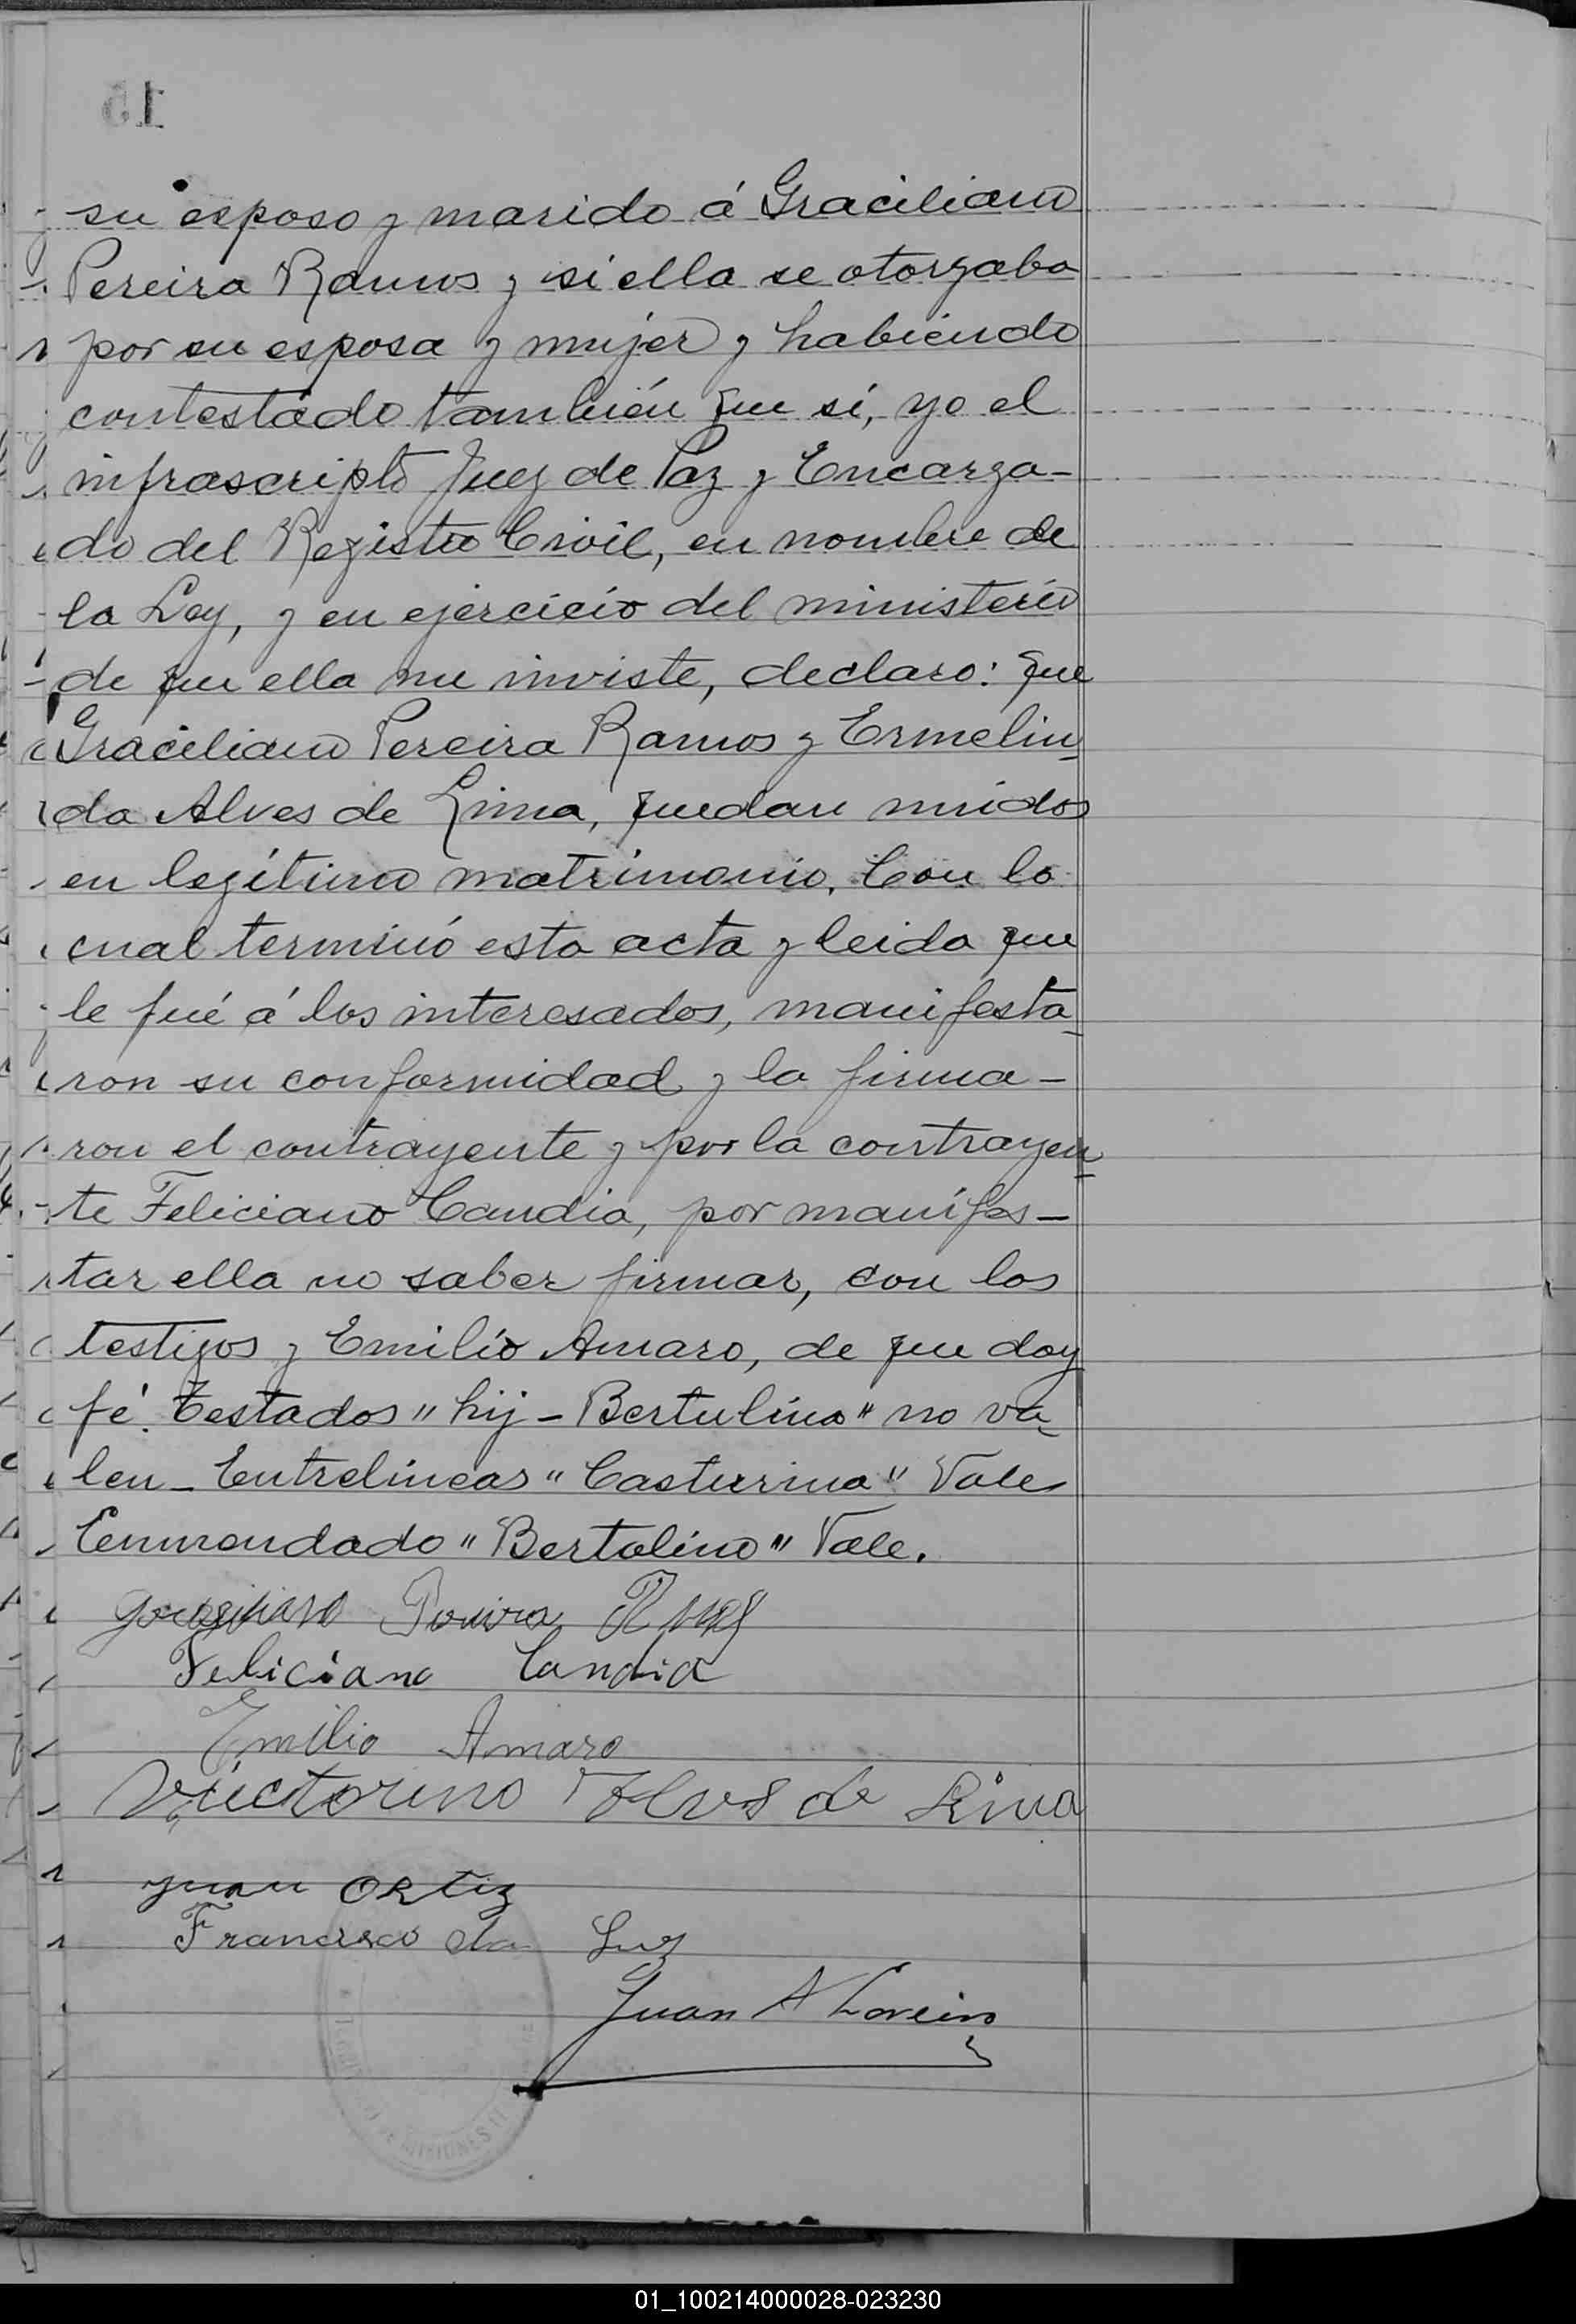 15
su esposo y marido á Graciliano
Pereira Ramos y si ella se otorgaba
por su esposa y mujer y habiendo
contestado también que sí, yo el
infrascripto Juez de Paz y Encarga-
do del Registro Civil, en nombre de
la Ley, y en ejercicio del ministerio
de que ella me inviste, declaro: que
Graciliano Pereira Ramos y Ermelin-
da Alves de Lima, quedan unidos
en legítimo matrimonio. Con lo
cual terminó esta acta y leida que
le fué á los interesados, manifesta-
ron su conformidad y la firma-
ron el contrayente y por la contrayen-
te Feliciano Candia, por manifes-
tar ella no saber firmar, con los
testigos y Emilio Amaro, de que doy
fé. Testados "hij - Bertulino" no va-
len - Entrelineas "Casturina" Vale
Enmendado "Bertolino" Vale.
Feliciano Candia
Emilio Amaro
Victorino Alves de Lima
Juan Ortiz
Francisco da Luz
Juan A
MISIONES
01_100214000028-023230